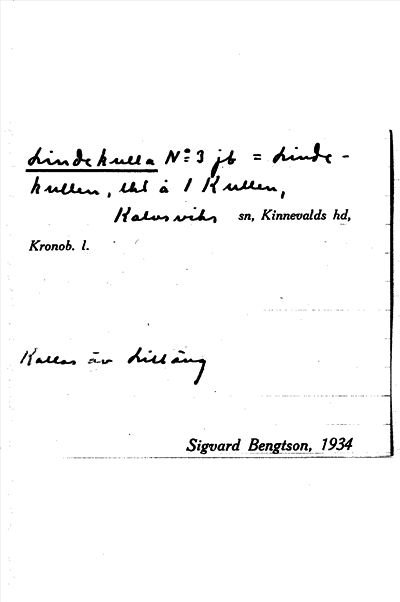 Lindekulla No 3 jb = Linde-
kullen, lht å 1 Kullen,
Kalvsviks sn, Kinnevalds hd,
Kronob. l.
Kallas äv Lilläng
Sigvard Bengtson, 1934